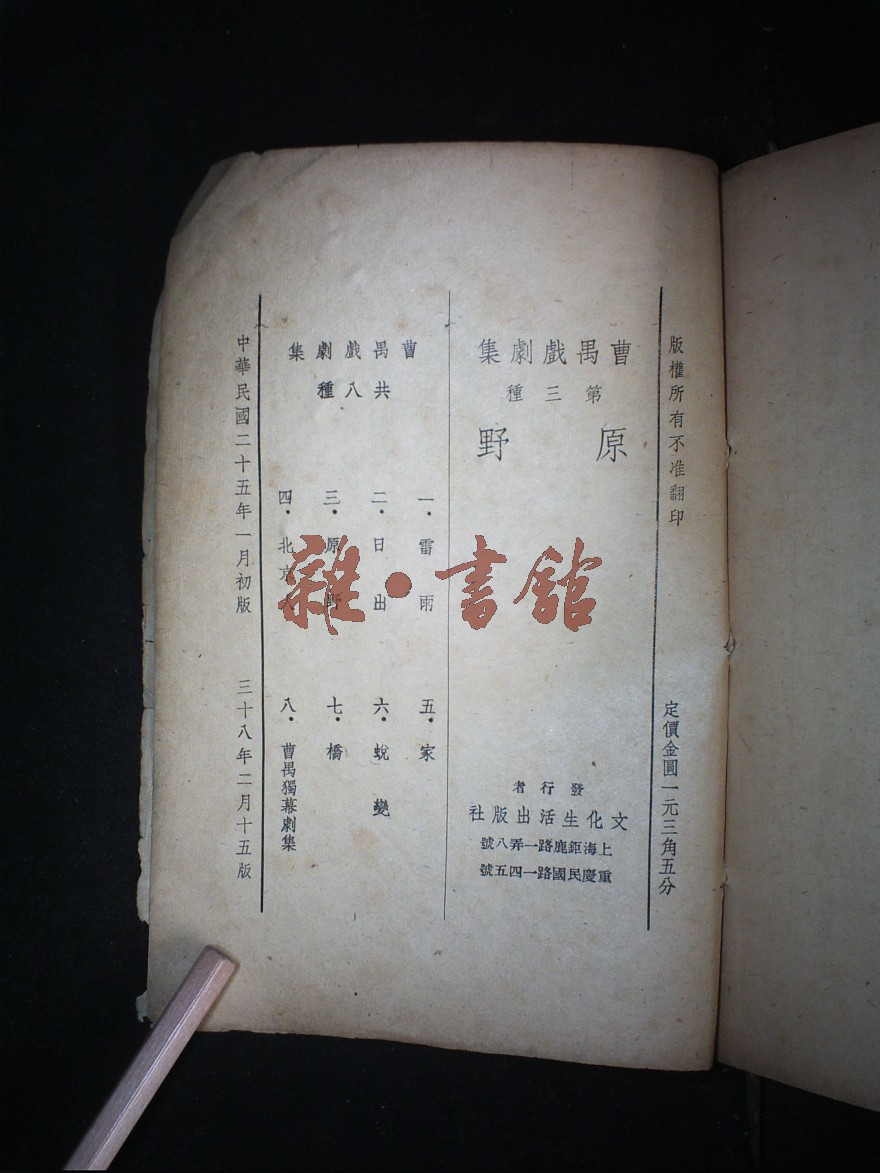 版權所有不准翻印
定價金圓一元三角五分
曹禺戲劇集
第三種
原野
發行者
文化生活出版社
上海鉅鹿路一弄八號
重慶民國路一四五號
曹禺戲劇集
共八種
一・雷雨
二・日出
三・原野
四・北京人
五・家
六・蛻變
七・橋
八・曹禺獨幕劇集
中華民國二十五年一月初版
三十八年二月十五版
雜・書館